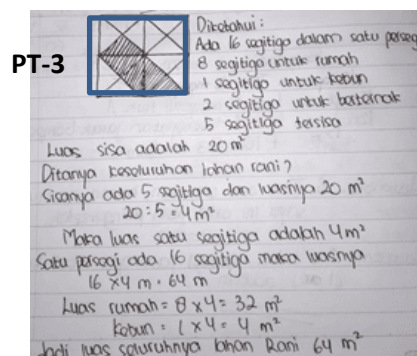 PT-3
Diketahui :
Ada 16 segitiga dalam satu persegi
8 segitiga untuk rumah
1 segitiga untuk kebun
2 segitiga untuk berternak
5 segitiga tersisa
Luas sisa adalah 20 m²
Ditanya keseluruhan lahan rani?
Sisanya ada 5 segitiga dan luasnya 20 m²
20 : 5 = 4 m²
Maka luas satu segitiga adalah 4 m²
Satu persegi ada 16 segitiga maka luasnya
16 x 4 m = 64 m
Luas rumah = 8 x 4 = 32 m²
Kebun = 1 x 4 = 4 m²
Jadi luas seluruhnya lahan Rani 64 m²